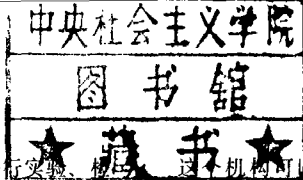 中央社会主义学院
图书馆
★藏书★
行实验、 这个机构可